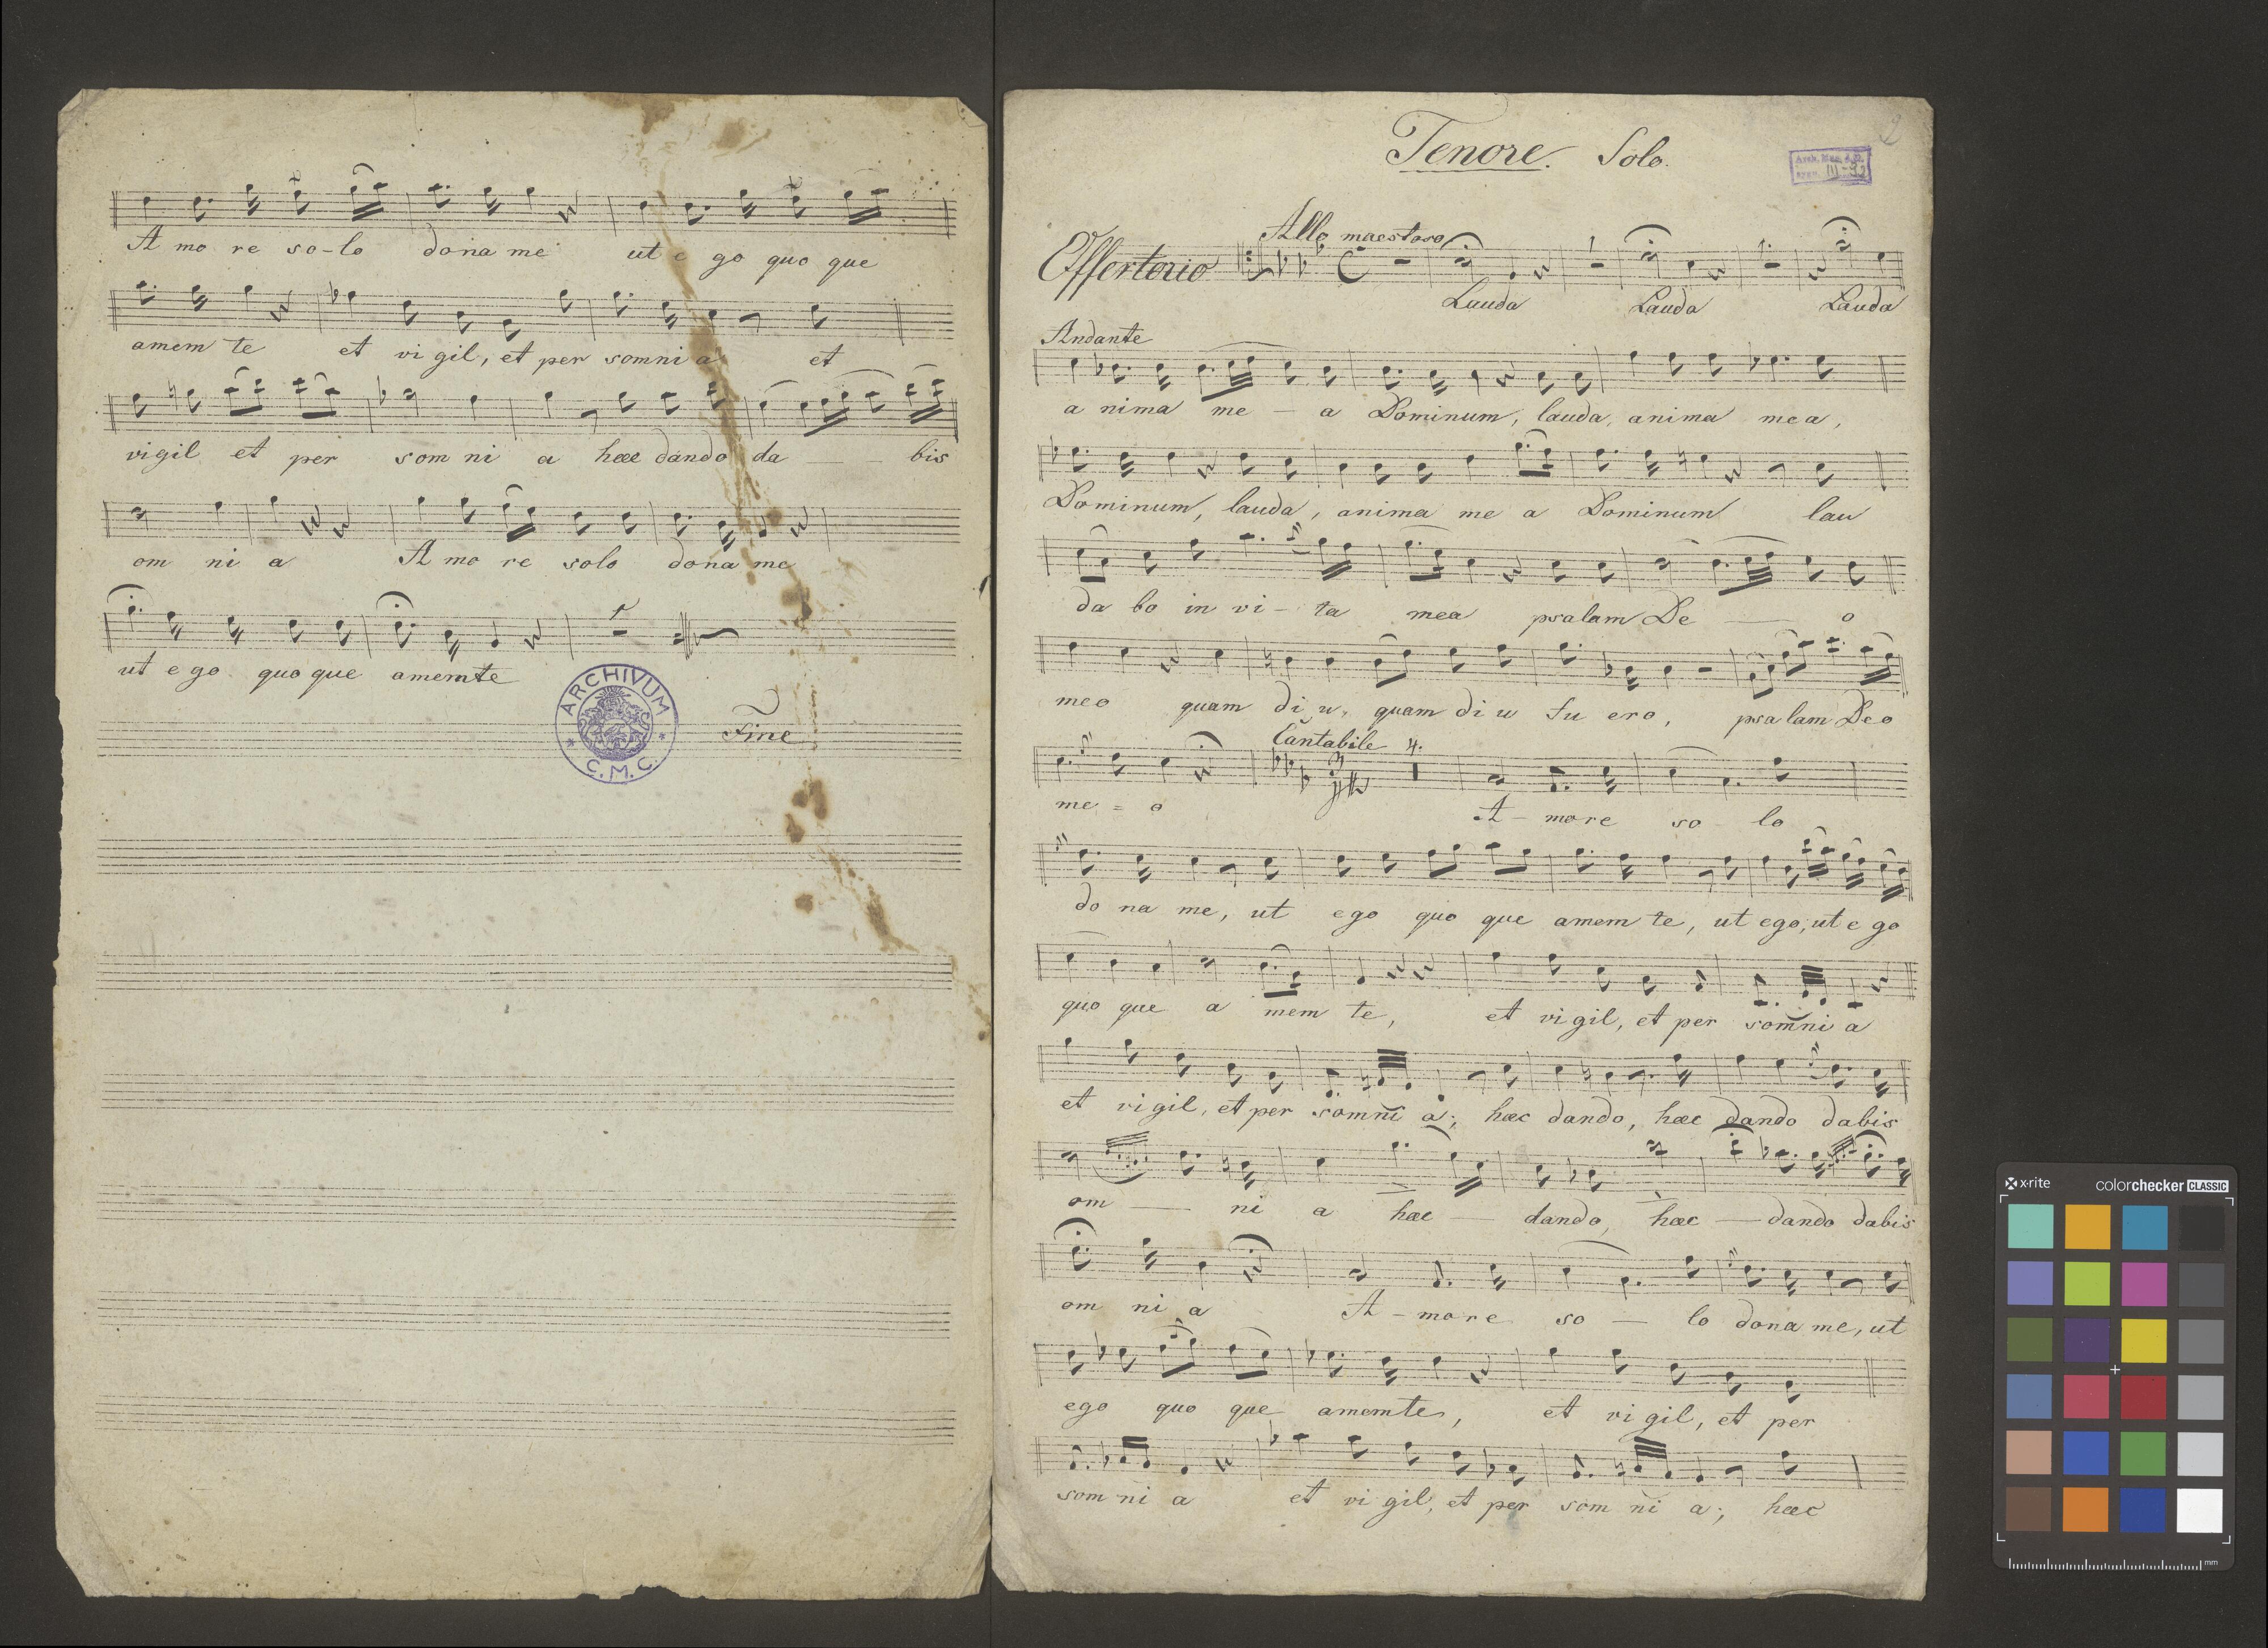 A mo re so-lo dona me ut e go quo que
amem te et vi gil, et per somni a et
vigil et per som ni a hæc dando da — bis
om ni a A mo re solo dona me
ut e go quo que amemte
ARCHIVUM
C. M. C.
Fine
Tenore. Solo.
2
Allo maestoso
Offertorio
Lauda Lauda Lauda
Andante
a nima me - a Dominum, lauda, anima mea,
Dominum, lauda, anima me a Dominum lau
da bo in vi - ta mea psalam De — o
meo quam di u, quam di u fu ero, psalam Deo
Cantabile 4.
me = o A - more so lo
do na me, ut ego quo que amem te, ut ego, ut e go
quo que a mem te, et vigil, et per somni a
et vigil, et per somni a; hæc dando, hæc dando dabis
om — ni a hæc — dando, hæc — dando dabis
om ni a A - more so — lo dona me, ut
ego quo que amemte, et vi gil, et per
som ni a et vi gil, et per som ni a; hæc
x-rite colorchecker CLASSIC
mm